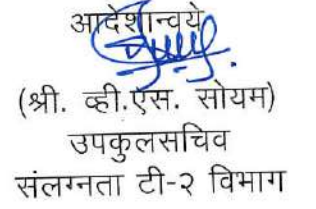 आदेशान्वये
(श्री. व्ही.एस. सोयम)
उपकुलसचिव
संलग्नता टी-२ विभाग